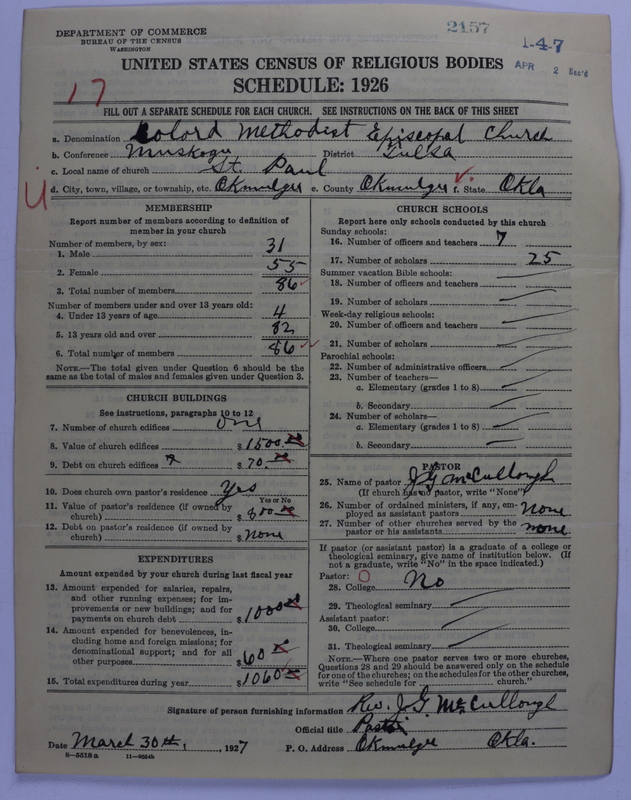 DEPARTMENT OF COMMERCE
BUREAU OF THE CENSUS
WASHINGTON
2157
1-4-7
APR 2 Rec'd
UNITED STATES CENSUS OF RELIGIOUS BODIES
SCHEDULE: 1926
17
FILL OUT A SEPARATE SCHEDULE FOR EACH CHURCH. SEE INSTRUCTIONS ON THE BACK OF THIS SHEET
a. Denomination Colord Methodist Episcopal Church
b. Conference Muskogee District Tulsa
c. Local name of church St. Paul
d. City, town, village, or township, etc. Okmulgee e. County Okmulgee f. State Okla
MEMBERSHIP
Report number of members according to definition of
member in your church
Number of members, by sex:
1. Male 31
2. Female 55
3. Total number of members 86
Number of members under and over 13 years old:
4. Under 13 years of age 4
5. 13 years old and over 82
6. Total number of members 86
NOTE.—The total given under Question 6 should be
same as the total of males and females given under Question 3.
CHURCH BUILDINGS
See instructions, paragraphs 10 to 12
7. Number of church edifices one
8. Value of church edifices $ 1500.00
9. Debt on church edifices $ 70.00
10. Does church own pastor's residence Yes
Yes or No
11. Value of pastor's residence (if owned by
church) $ 800.00
12. Debt on pastor's residence (if owned by
church) $ None
EXPENDITURES
Amount expended by your church during last fiscal year
13. Amount expended for salaries, repairs,
and other running expenses; for im-
provements or new buildings; and for
payments on church debt $ 1000.00
14. Amount expended for benevolences, in-
cluding home and foreign missions; for
denominational support; and for all
other purposes $ 60.00
15. Total expenditures during year $ 1060.00
CHURCH SCHOOLS
Report here only schools conducted by this church
Sunday schools:
16. Number of officers and teachers 7
17. Number of scholars 25
Summer vacation Bible schools:
18. Number of officers and teachers
19. Number of scholars
Week-day religious schools:
20. Number of officers and teachers
21. Number of scholars
Parochial schools:
22. Number of administrative officers
23. Number of teachers—
a. Elementary (grades 1 to 8)
b. Secondary
24. Number of scholars—
a. Elementary (grades 1 to 8)
b. Secondary
PASTOR
25. Name of pastor J G McCullough
(If church has no pastor, write "None")
26. Number of ordained ministers, if any, em-
ployed as assistant pastors None
27. Number of other churches served by the
pastor or his assistants none
If pastor (or assistant pastor) is a graduate of a college or
theological seminary, give name of institution below. (If
not a graduate, write "No" in the space indicated.)
Pastor:
28. College No
29. Theological seminary
Assistant pastor:
30. College
31. Theological seminary
NOTE.—Where one pastor serves two or more churches,
Questions 28 and 29 should be answered only on the schedule
for one of the churches; on the schedules for the other churches,
write "See schedule for church."
Signature of person furnishing information Rev. J. G. McCullough
Official title Pastor
Date March 30th, 1927 P. O. Address Okmulgee Okla.